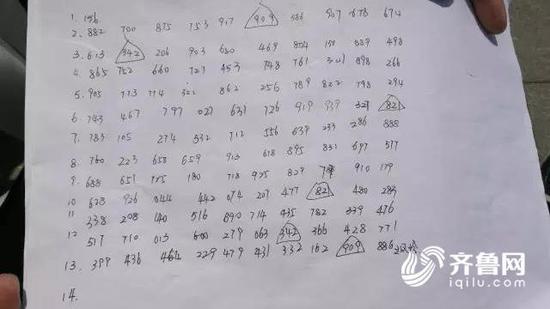 1. 156
2. 882 700 875 153 917 909 586 907 678 674
3. 613 342 206 903 680 469 854 150 889 498
4. 865 752 660 727 453 748 761 321 898 266
5. 905 773 774 322 862 256 789 822 798 294
6. 743 467 797 027 631 726 919 939 327 821
7. 783 105 274 532 712 556 639 233 286 888
8. 760 223 658 659 913 618 895 831 697 577
9. 688 651 175 180 718 925 829 910 179
10. 628 926 044 442 074 207 477 821 480 283
11 338 208 140 516 890 714 435 782 339 476
12 517 710 013 600 279 063 342 366 428 771
13. 399 436 464 229 479 431 332 162 909 886
14.
齐鲁网
iqilu.com